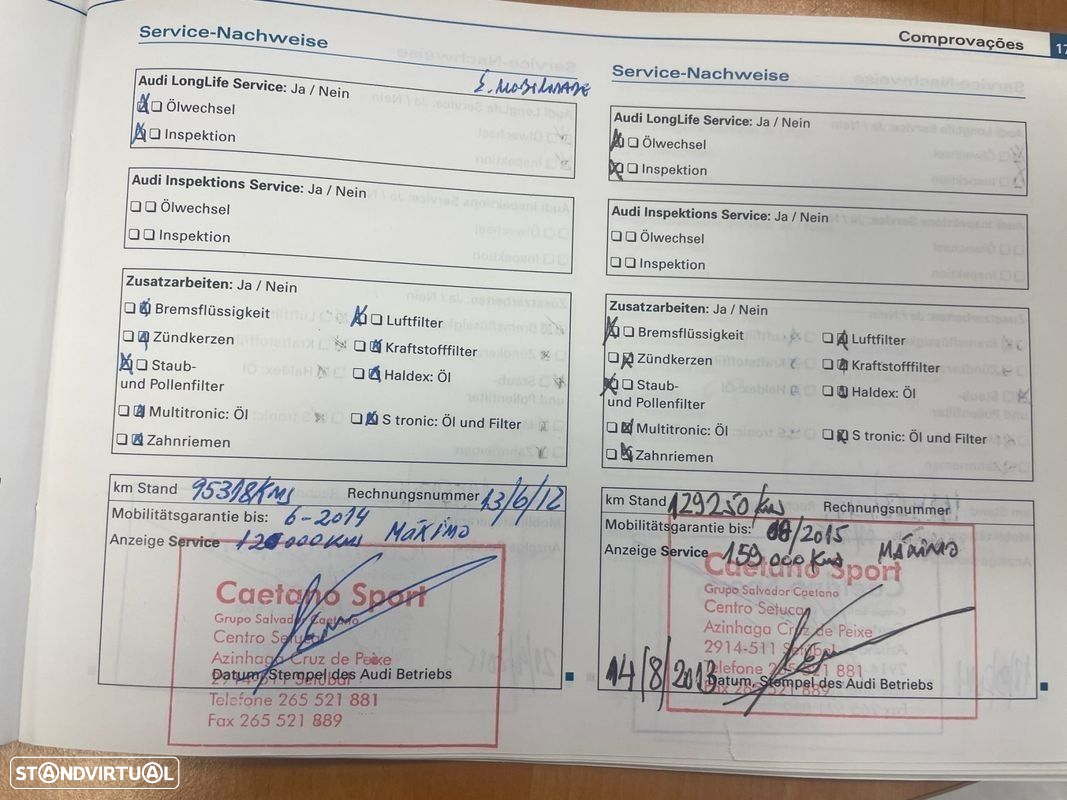 Comprovações
17
Service-Nachweise
Audi LongLife Service: Ja / Nein
Ölwechsel
Inspektion
Audi Inspektions Service: Ja / Nein
Ölwechsel
Inspektion
Zusatzarbeiten: Ja / Nein
Bremsflüssigkeit
Luftfilter
Zündkerzen
Kraftstofffilter
Staub-
und Pollenfilter
Haldex: Öl
Multitronic: Öl
S tronic: Öl und Filter
Zahnriemen
km Stand 95318 Kms Rechnungsnummer 13/6/12
Mobilitätsgarantie bis: 6-2014
Anzeige Service MÁXIMO
Caetano Sport
Grupo Salvador Caetano
Centro Setucar
Azinhaga Cruz de Peixe
2914-511 Setúbal
Datum, Stempel des Audi Betriebs
Telefone 265 521 881
Fax 265 521 889
Service-Nachweise
Audi LongLife Service: Ja / Nein
Ölwechsel
Inspektion
Audi Inspektions Service: Ja / Nein
Ölwechsel
Inspektion
Zusatzarbeiten: Ja / Nein
Bremsflüssigkeit
Luftfilter
Zündkerzen
Kraftstofffilter
Staub-
und Pollenfilter
Haldex: Öl
Multitronic: Öl
S tronic: Öl und Filter
Zahnriemen
km Stand 129250 Kms Rechnungsnummer
Mobilitätsgarantie bis: /2015
Anzeige Service 159 000 Kms MÁXIMO
Caetano Sport
Grupo Salvador Caetano
Centro Setucar
Azinhaga Cruz de Peixe
2914-511 Setúbal
Telefone 265 521 881
14/8/2013
Datum, Stempel des Audi Betriebs
Fax 265 521 889
STANDVIRTUAL